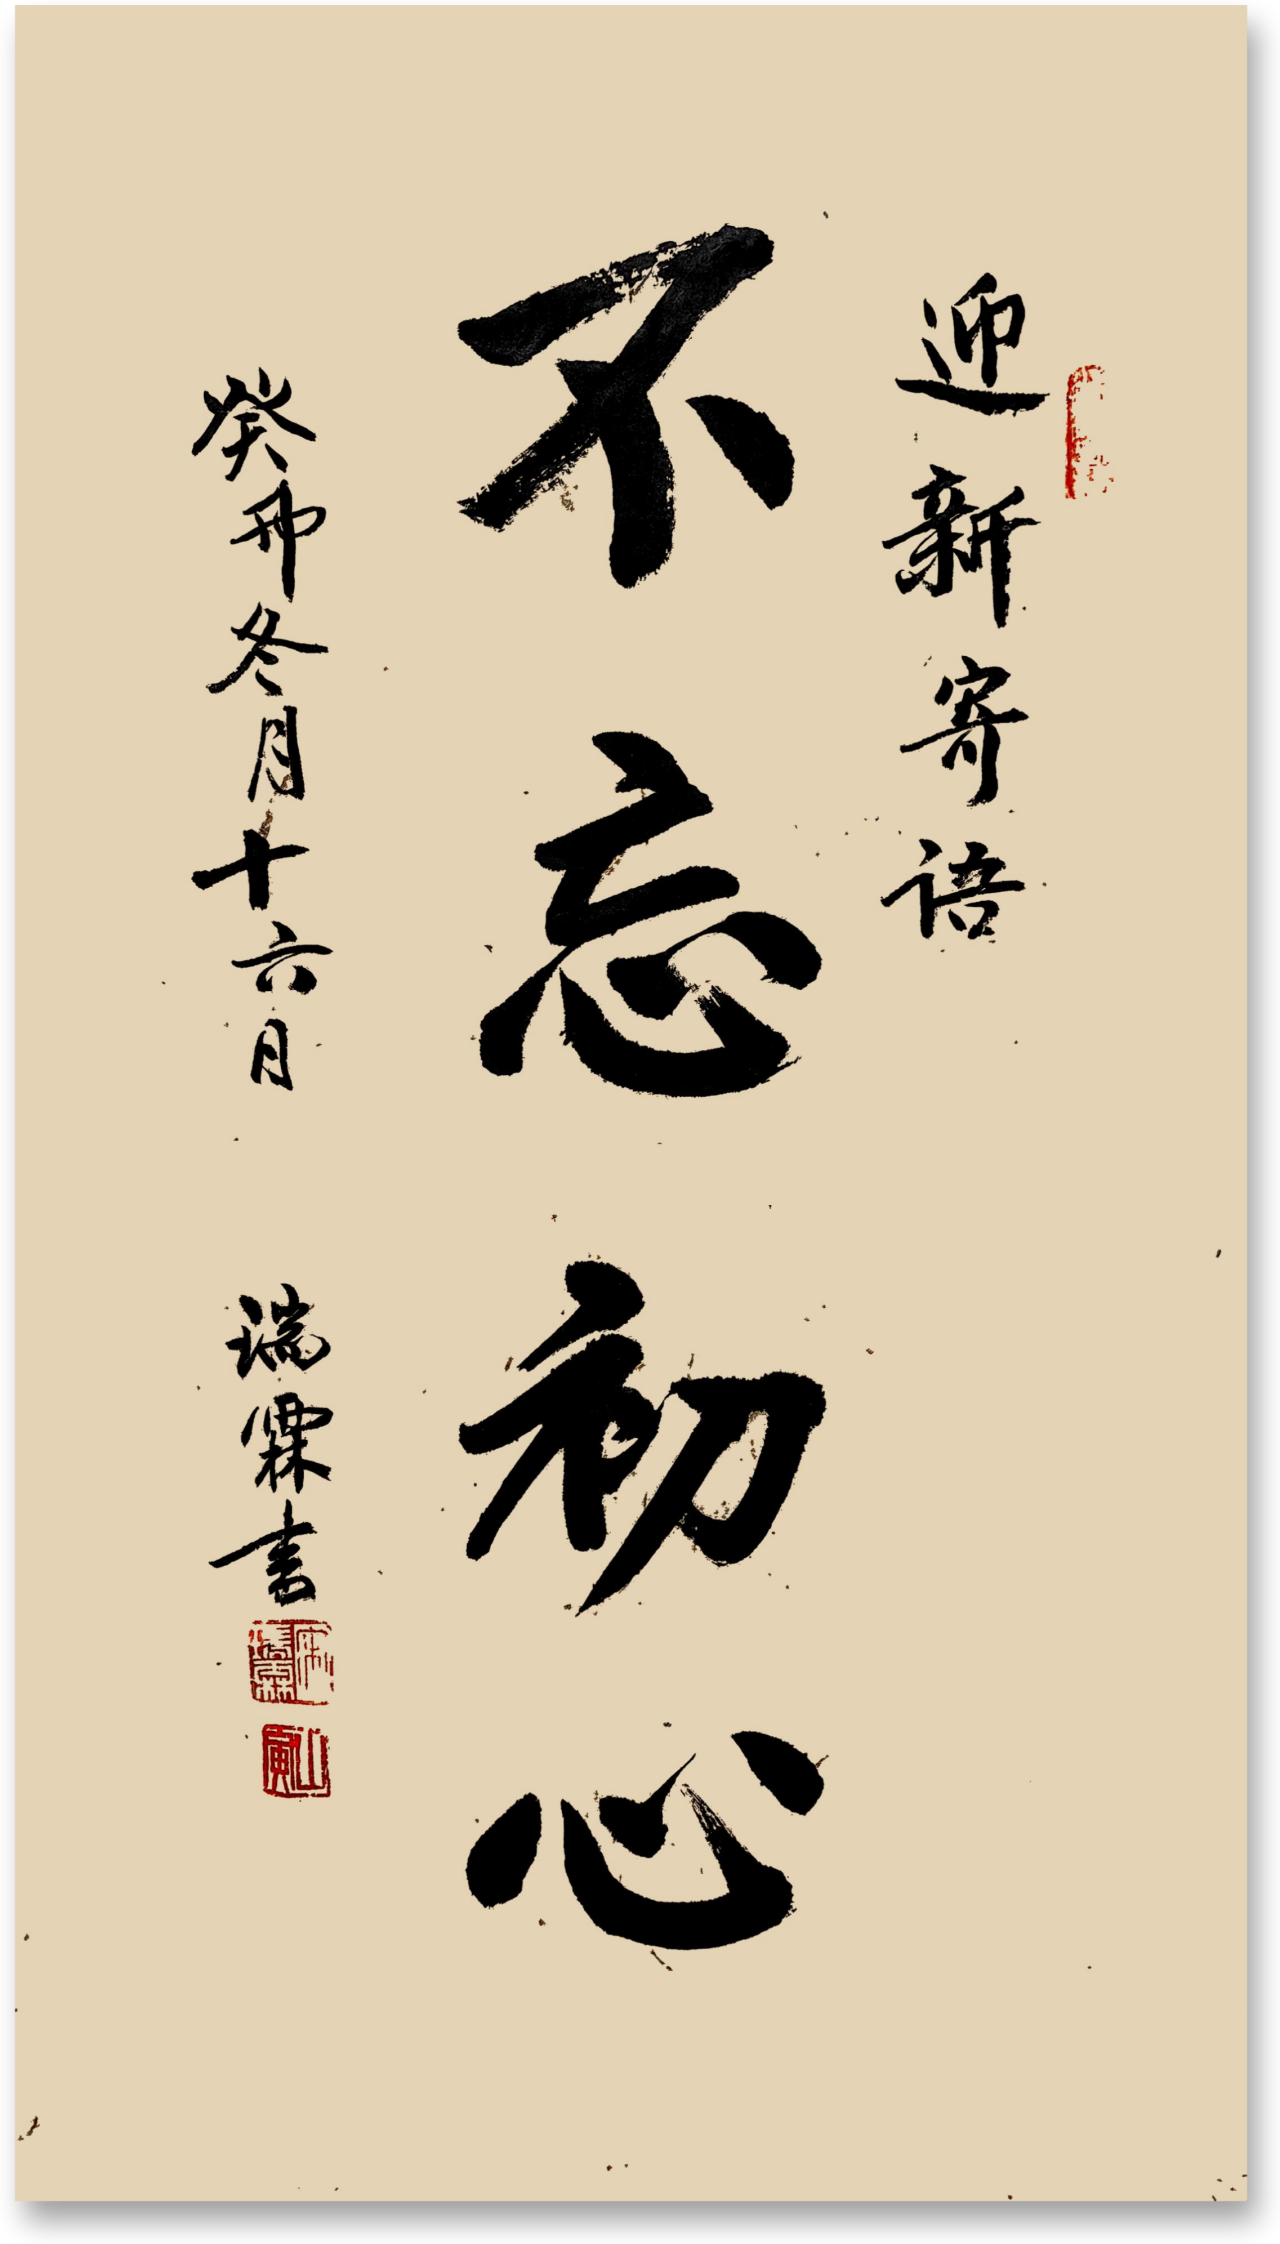 迎新寄语
不忘初心
癸卯冬月十六月
瑞霖书